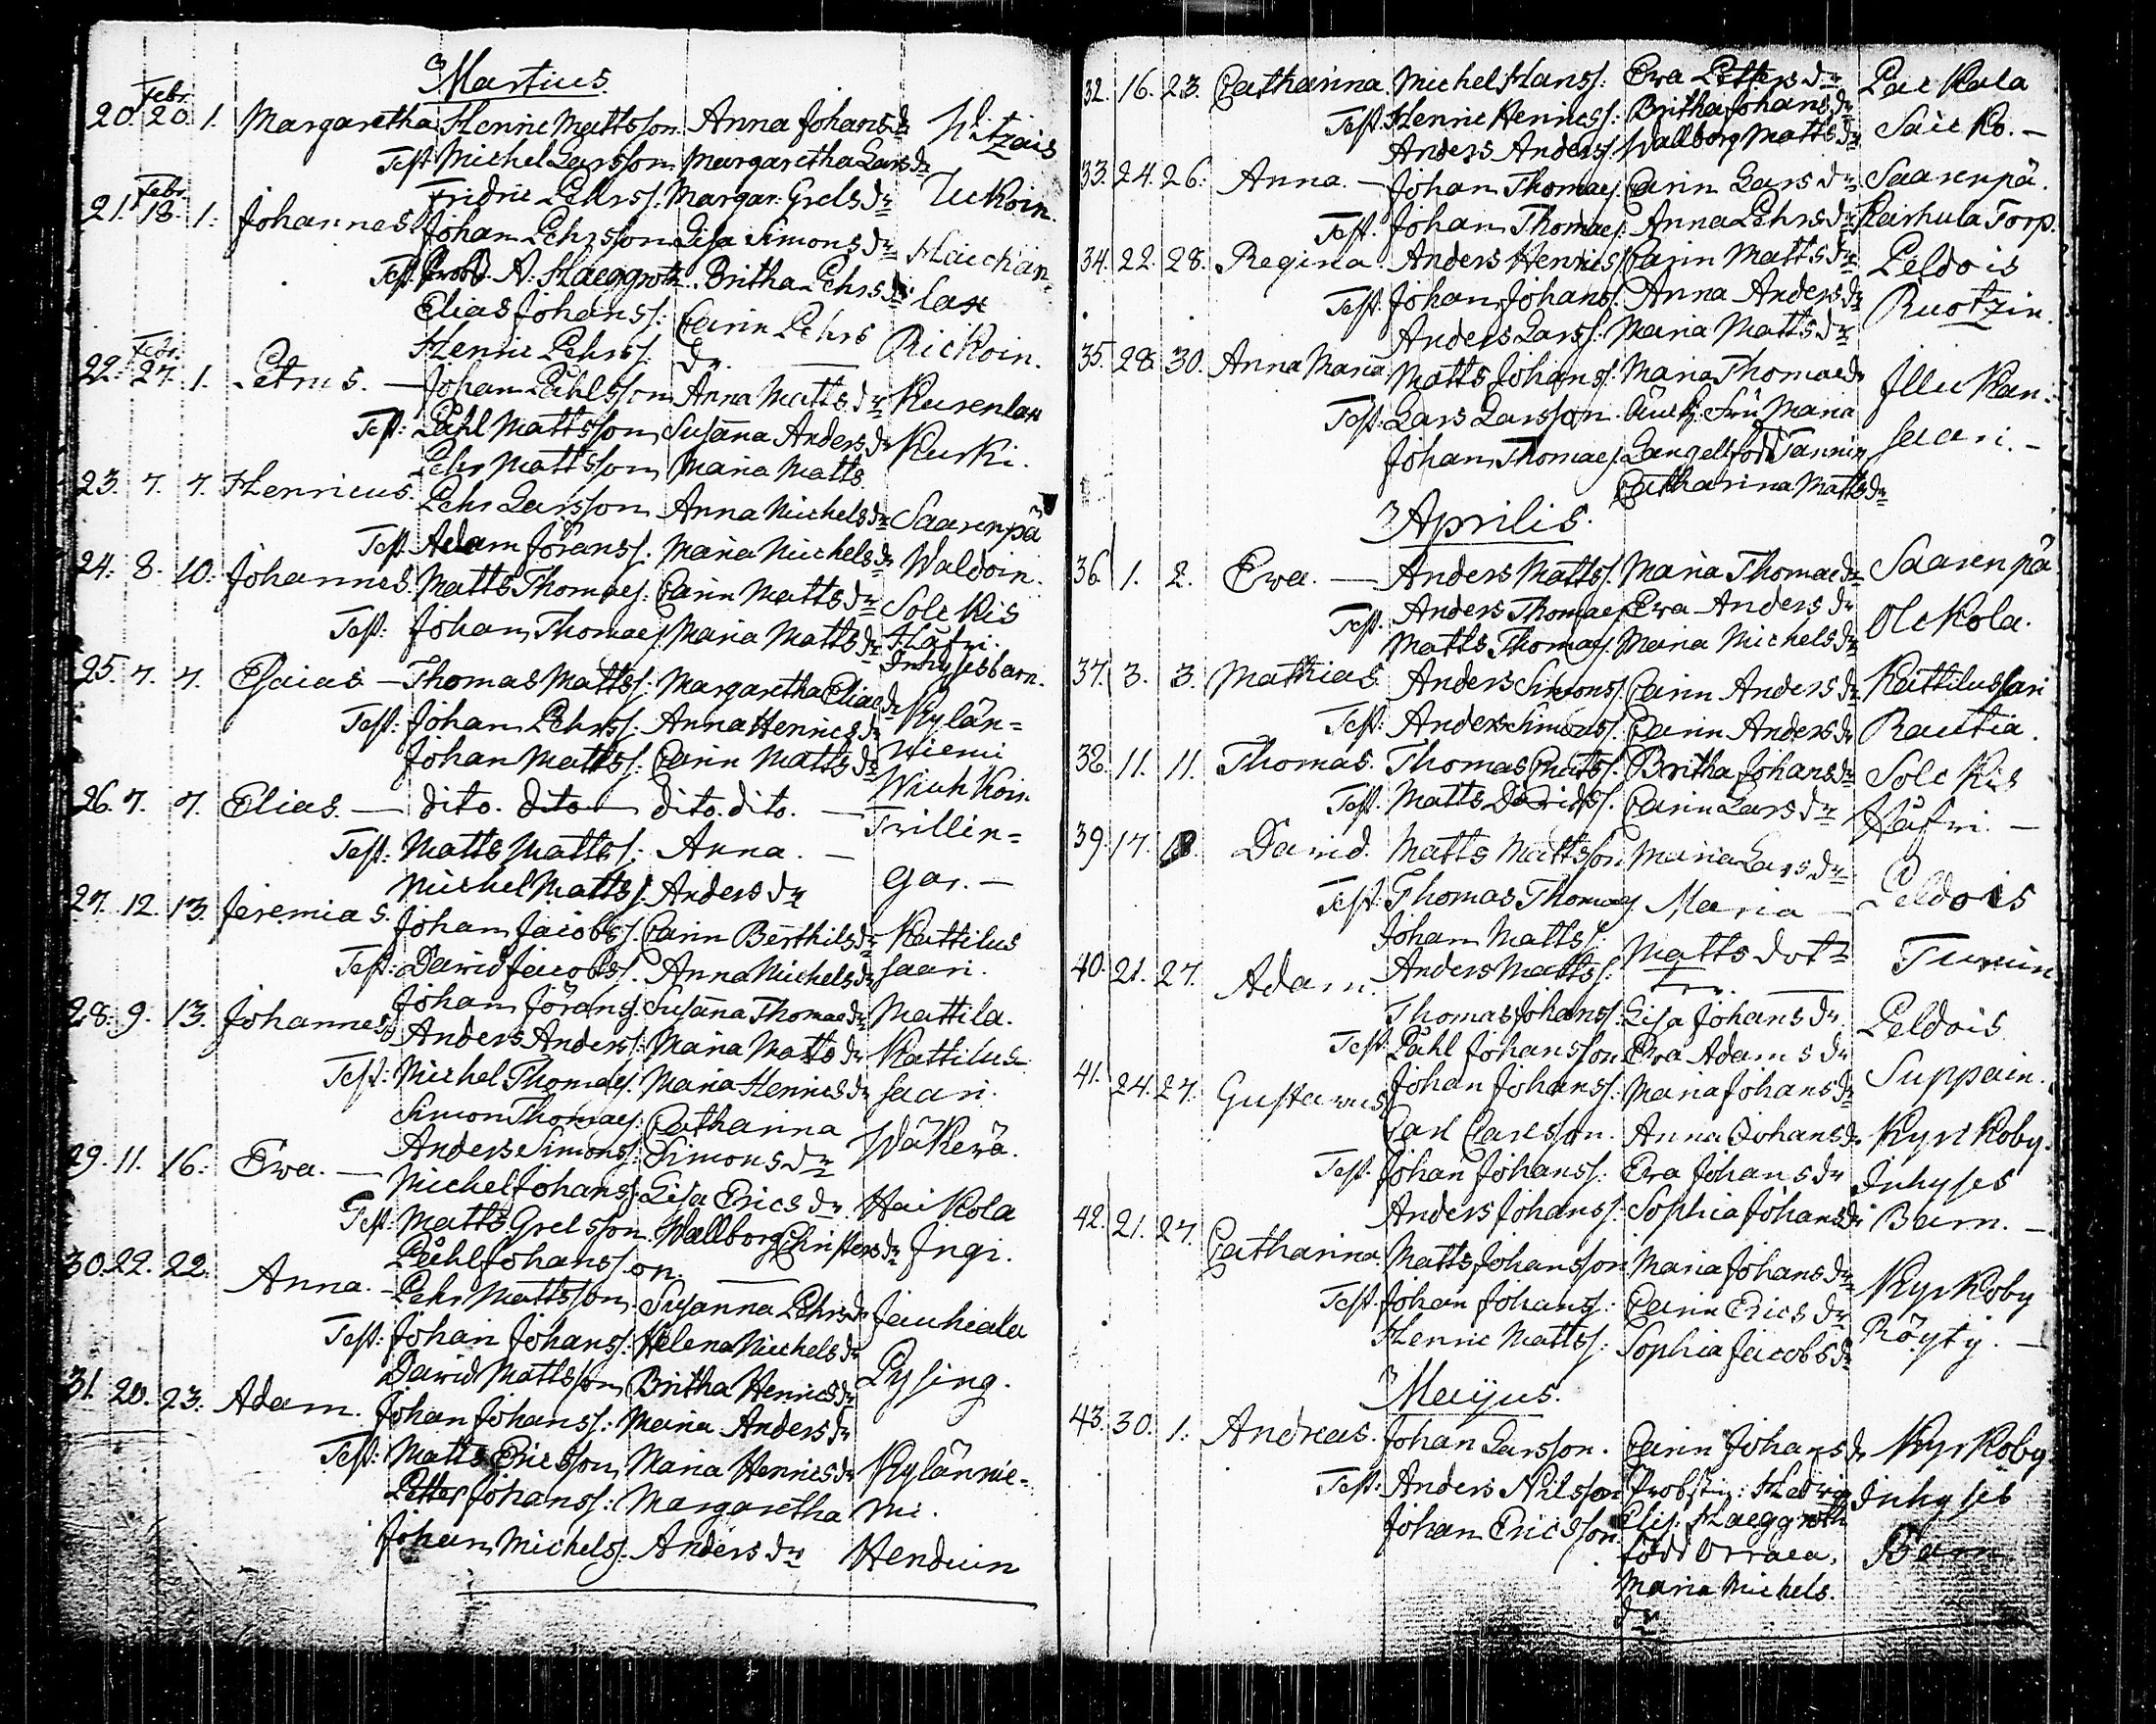 Martius.
Febr.
20. 20. 1. Margaretha Henric Mattsson Anna Johansdr
Test Michel Larsson Margaretha Larsdr
Fridric Pehrss. Margar: Grelsdr Uckoin.
Febr.
21. 18. 1. Johannes Johan Pehrsson Lisa Simonsdr Haichan-
Test. Probst. A. Haeggroth. Britha Pehrsdr lax
Elias Johanss: Carin Pehrs Rickoin.
Henric Pehrss. dr.
Febr.
22. 27. 1. Petrus. — Johan Påhlsson Anna Mattsdr Kusenlax
Test: Påhl Mattsson Susanna Andersdr Kuski.
Pehr Mattsson Maria Matts
23. 7. 7. Henricus. Pehr Larsson Anna Michelsdr Saarenpä
Test. Adam Joranss. Maria Michelsdr Waldoin.
24. 8. 10. Johannes. Matts Thomaes. Carin Mattsdr Solckis
Test: Johan Thomaes. Maria Mattsdr Håfri.
Inhysesbarn.
25. 7. 7. Esaias — Thomas Mattss. Margaretha Eliaedr Kylän=
Test: Johan Pehrss: Anna Henricsdr niemi
Johan Mattss: Carin Mattsdr Wiukkoin
26. 7. 7. Elias. — dito. dito — dito. dito. — Trillin=
Test: Matts Mattss: Anna. — gar. —
Michel Mattss. Andersdr
27. 12. 13. Jeremias. Johan Jacobss. Carin Berthilsdr Kattilus
Test: David Jacobss. Anna Michelsdr saari.
Johan Jörans. Susanna Thomaedr Mattila.
28. 9. 13. Johannes Anders Anderss: Maria Mattsdr Kattilus
Test: Michel Thomaes. Maria Henricsdr saari.
Simon Thomaes. Catharina
Anders Simons. Simonsdr Wäkerä.
29. 11. 16. Ewa. — Michel Johanss: Lisa Ericsdr. Haikola
Test: Matts Grelsson. Wallborg Christersdr Ingi.
Påhl Johansson
30. 22. 22. Anna. — Pehr Mattsson. Susanna Pehrsdr Jauhiala
Test: Johan Johanss: Helena Michelsdr
David Mattsson Britha Henricsdr Pysing.
31. 20. 23. Adam. Johan Johanss: Maria Andersdr
Test: Matts Ericsson Maria Henricsdr Kylännie-
Petter Johanss: Margaretha mi.
Johan Michelss: Andersdr Henduin
32. 16. 23. Catharina Michel Hanss: Ewa Pettersdr Packala
Test. Henric Henricss: Britha Johansdr Saicko. —
Anders Anderss. Wallborg Mattsdr
33. 24. 26. Anna. — Johan Thomaes. Carin Larsdr Saarenpä.
Test. Johan Thomaes. Anna Pehrsdr Karhula Torp.
34. 22. 28. Regina. Anders Henricss Carin Mattsdr Peldois
Test. Johan Johanss. Anna Andersdr Ruotzin.
Anders Larss: Maria Mattsdr
35. 28. 30. Anna Maria Matts Johanss: Maria Thomaedr Illukan-
Test: Lars Larsson. Fru Maria saari. —
Johan Thomaes. född Tannin
Catharina Mattsdr
Aprilis.
36. 1. 2. Ewa. — Anders Mattss. Maria Thomaedr Saarenpä
Test. Anders Thomaes Ewa Andersdr Olckola.
Matts Thomaes. Maria Michelsdr
37. 3. 3. Mathias. Anders Simonss. Carin Andersdr Kattilusari
Test: Anders Simonss. Carin Andersdr Rautia.
38. 11. 11. Thomas. Thomas Mattss. Britha Johansdr Solckis
Test: Matts Davidss. Carin Larsdr Håfri. —
39. 17. 18. David. Matts Mattsson Maria Larsdr
Test: Thomas Thomaes. Maria — Peldois
Johan Mattss:
40. 21. 27. Adam. Anders Mattss: Matts dotr Tumin
Thomas Johanss: Lisa Johansdr Peldois
Test. Påhl Johansson Ewa Adamsdr
41. 24. 27. Gustavus Johan Johanss: Maria Johansdr Suppain.
Carl Carlsson. Anna Johansdr Kyrkoby.
Test. Johan Johanss: Eva Johansdr Inhyses
Anders Johanss: Sophia Johansdr Barn. —
42. 21. 27. Catharina. Matts Johansson Maria Johansdr Kyrkoby
Test. Johan Johanss: Carin Ericsdr
Henric Mattss: Sophia Jacobsdr Röyty. —
Maijus.
43. 30. 1. Andreas. Johan Larsson. Carin Johansdr Kyrkoby
Test: Anders Nilsson Probstin: Hedvig Inhyses
Johan Ericsson Elis: Haeggroth Barn
född Orraea.
Maria Michels.
dr